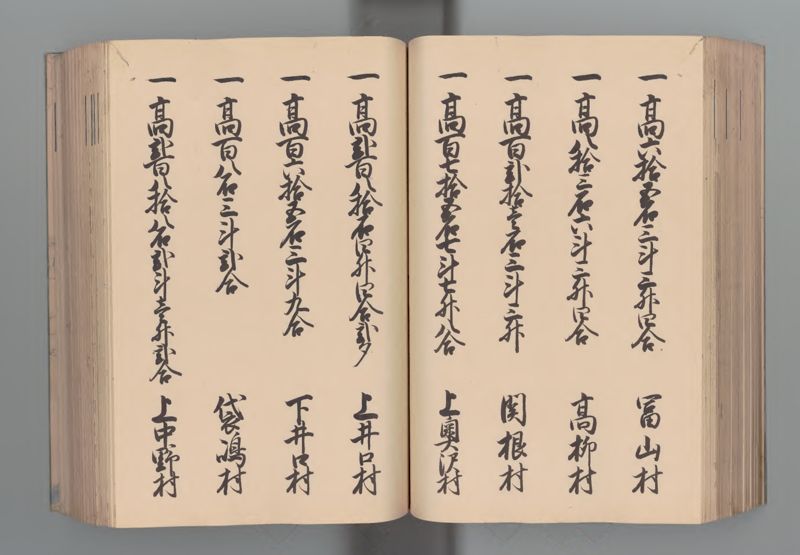 一高六拾五石三斗二升四合 冨山村
一高八拾三石六斗二升四合 高柳村
一高百弐拾壱石三斗二升 関根村
一高百七拾五石七斗七升八合 上奥沢村
一高弐百八拾石四升四合弐夕 上井口村
一高百六拾五石三斗九合 下井口村
一高百八石三斗弐合 袋嶋村
一高弐百八拾八石弐斗壱升弐合 上中野村